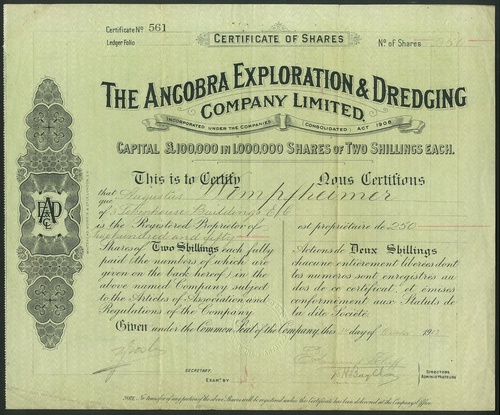 Certificate No 561
Ledger Folio
CERTIFICATE OF SHARES
No of Shares 250
THE ANCOBRA EXPLORATION & DREDGING
COMPANY LIMITED.
INCORPORATED UNDER THE COMPANIES (CONSOLIDATED) ACT 1908
CAPITAL £100,000 IN 1,000,000 SHARES OF TWO SHILLINGS EACH.
This is to Certify
that Augustus Wimpfheimer
of Buildings E.C.
is the Registered Proprietor of
two hundred and fifty
Shares of Two Shillings each fully
paid (the numbers of which are
given on the back hereof) in the
above named Company subject
to the Articles of Association and
Regulations of the Company
Nous Certifions
que
est propriétaire de 250
Actions de Deux Shillings
chacune entièrement libérées dont
les numéros sont enregistrés au
dos de ce certificat, et émises
conformément aux Statuts de
la dite Société.
Given under the Common Seal of the Company, this day of 191
SECRETARY.
EXAMD BY
DIRECTORS
ADMINISTRATEURS
NOTE. No transfer of any portion of the above Shares will be registered unless this Certificate has been delivered at the Company's Office.